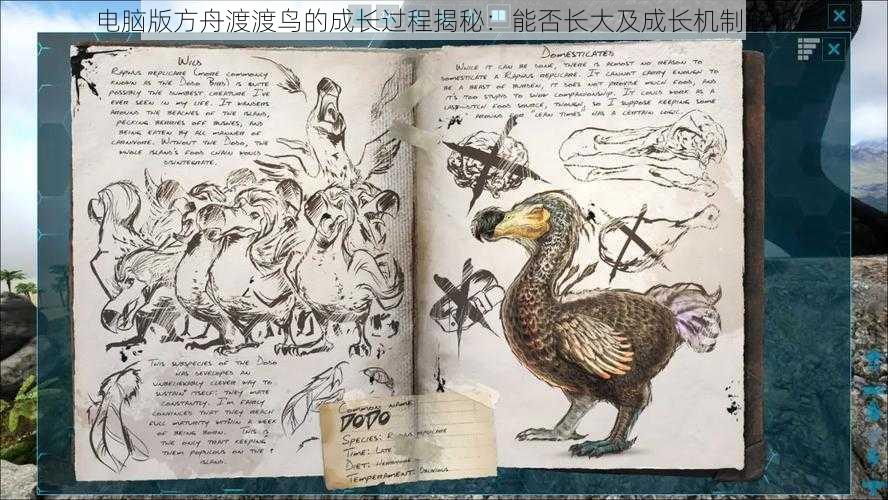 电脑版方舟渡渡鸟的成长过程揭秘：能否长大及成长机制
Wild
Raphus replicare (more commonly
known as the Dodo Bird) is quite
possibly the dumbest creature I've
ever seen in my life. It wanders
around the beaches of the island,
pecking berries off bushes, and
being eaten by all manner of
carnivore. Without the Dodo, the
whole island's food chain would
disintegrate.
This subspecies of the Dodo
has developed an
unbelievably clever way to
sustain itself: they mate
constantly. I'm fairly
convinced that they reach
full maturity within a week
of being born. This is
the only trait keeping
them populous on the
island.
Common name
DODO
Species: replicare
Time: Late
Diet:
Temperament: Oblivious
Domesticated
While it can be done, there is almost no reason to
domesticate a Raphus replicare. It cannot carry enough to
be a beast of burden, it does not provide much food, and
it's too stupid to show companionship. It could work as a
last-ditch food source, though, so I suppose keeping some
around for "lean times" has a certain logic.